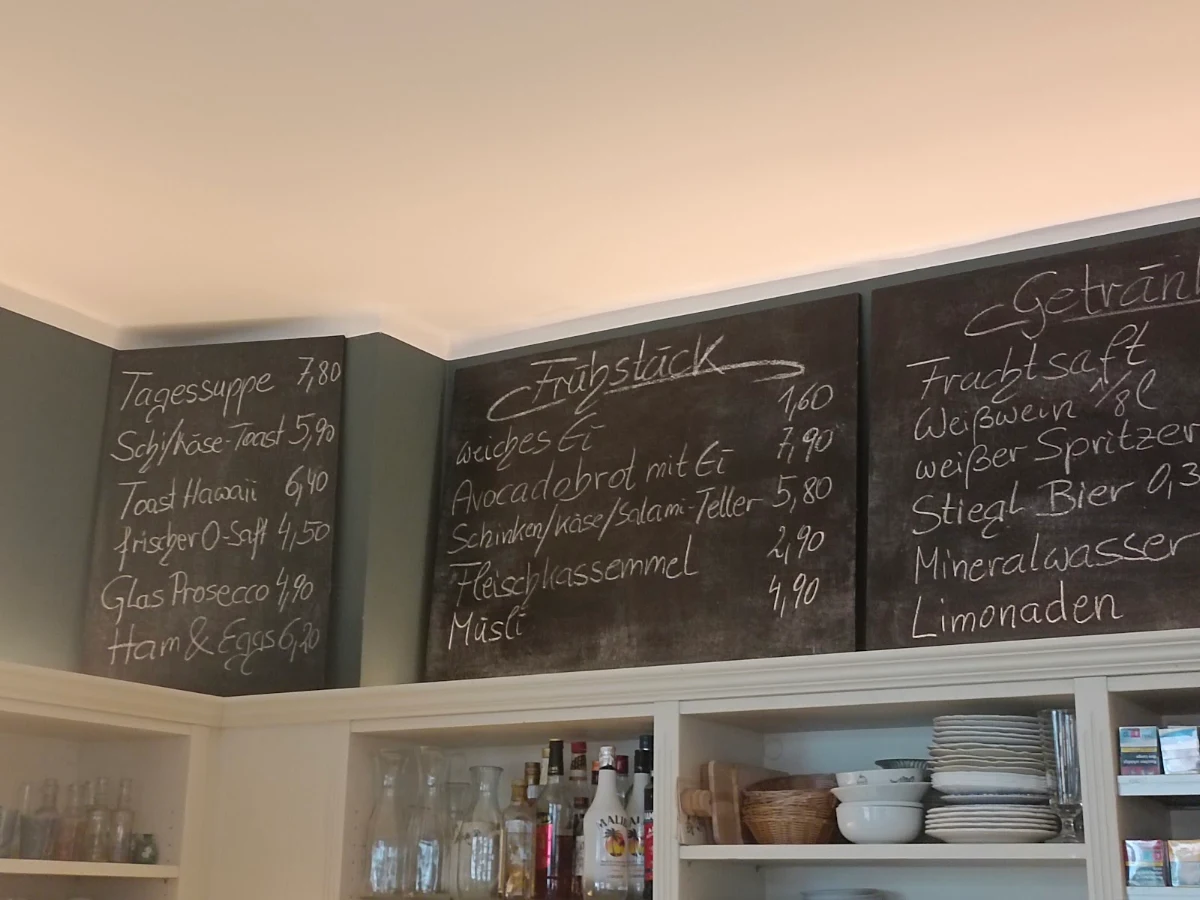 Tagessuppe 7,80
Schi/Käse-Toast 5,90
Toast Hawaii 6,40
frischer O-Saft 4,50
Glas Prosecco 4,90
Ham & Eggs 6,20
Frühstück
weiches Ei 1,60
Avocadobrot mit Ei 7,90
Schinken/Käse/Salami-Teller 5,80
Fleischkassemmel 2,90
Müsli 4,90
Getränk
Fruchtsaft
Weißwein 1/8l
weißer Spritzer
Stiegl Bier 0,3
Mineralwasser
Limonaden
MALI